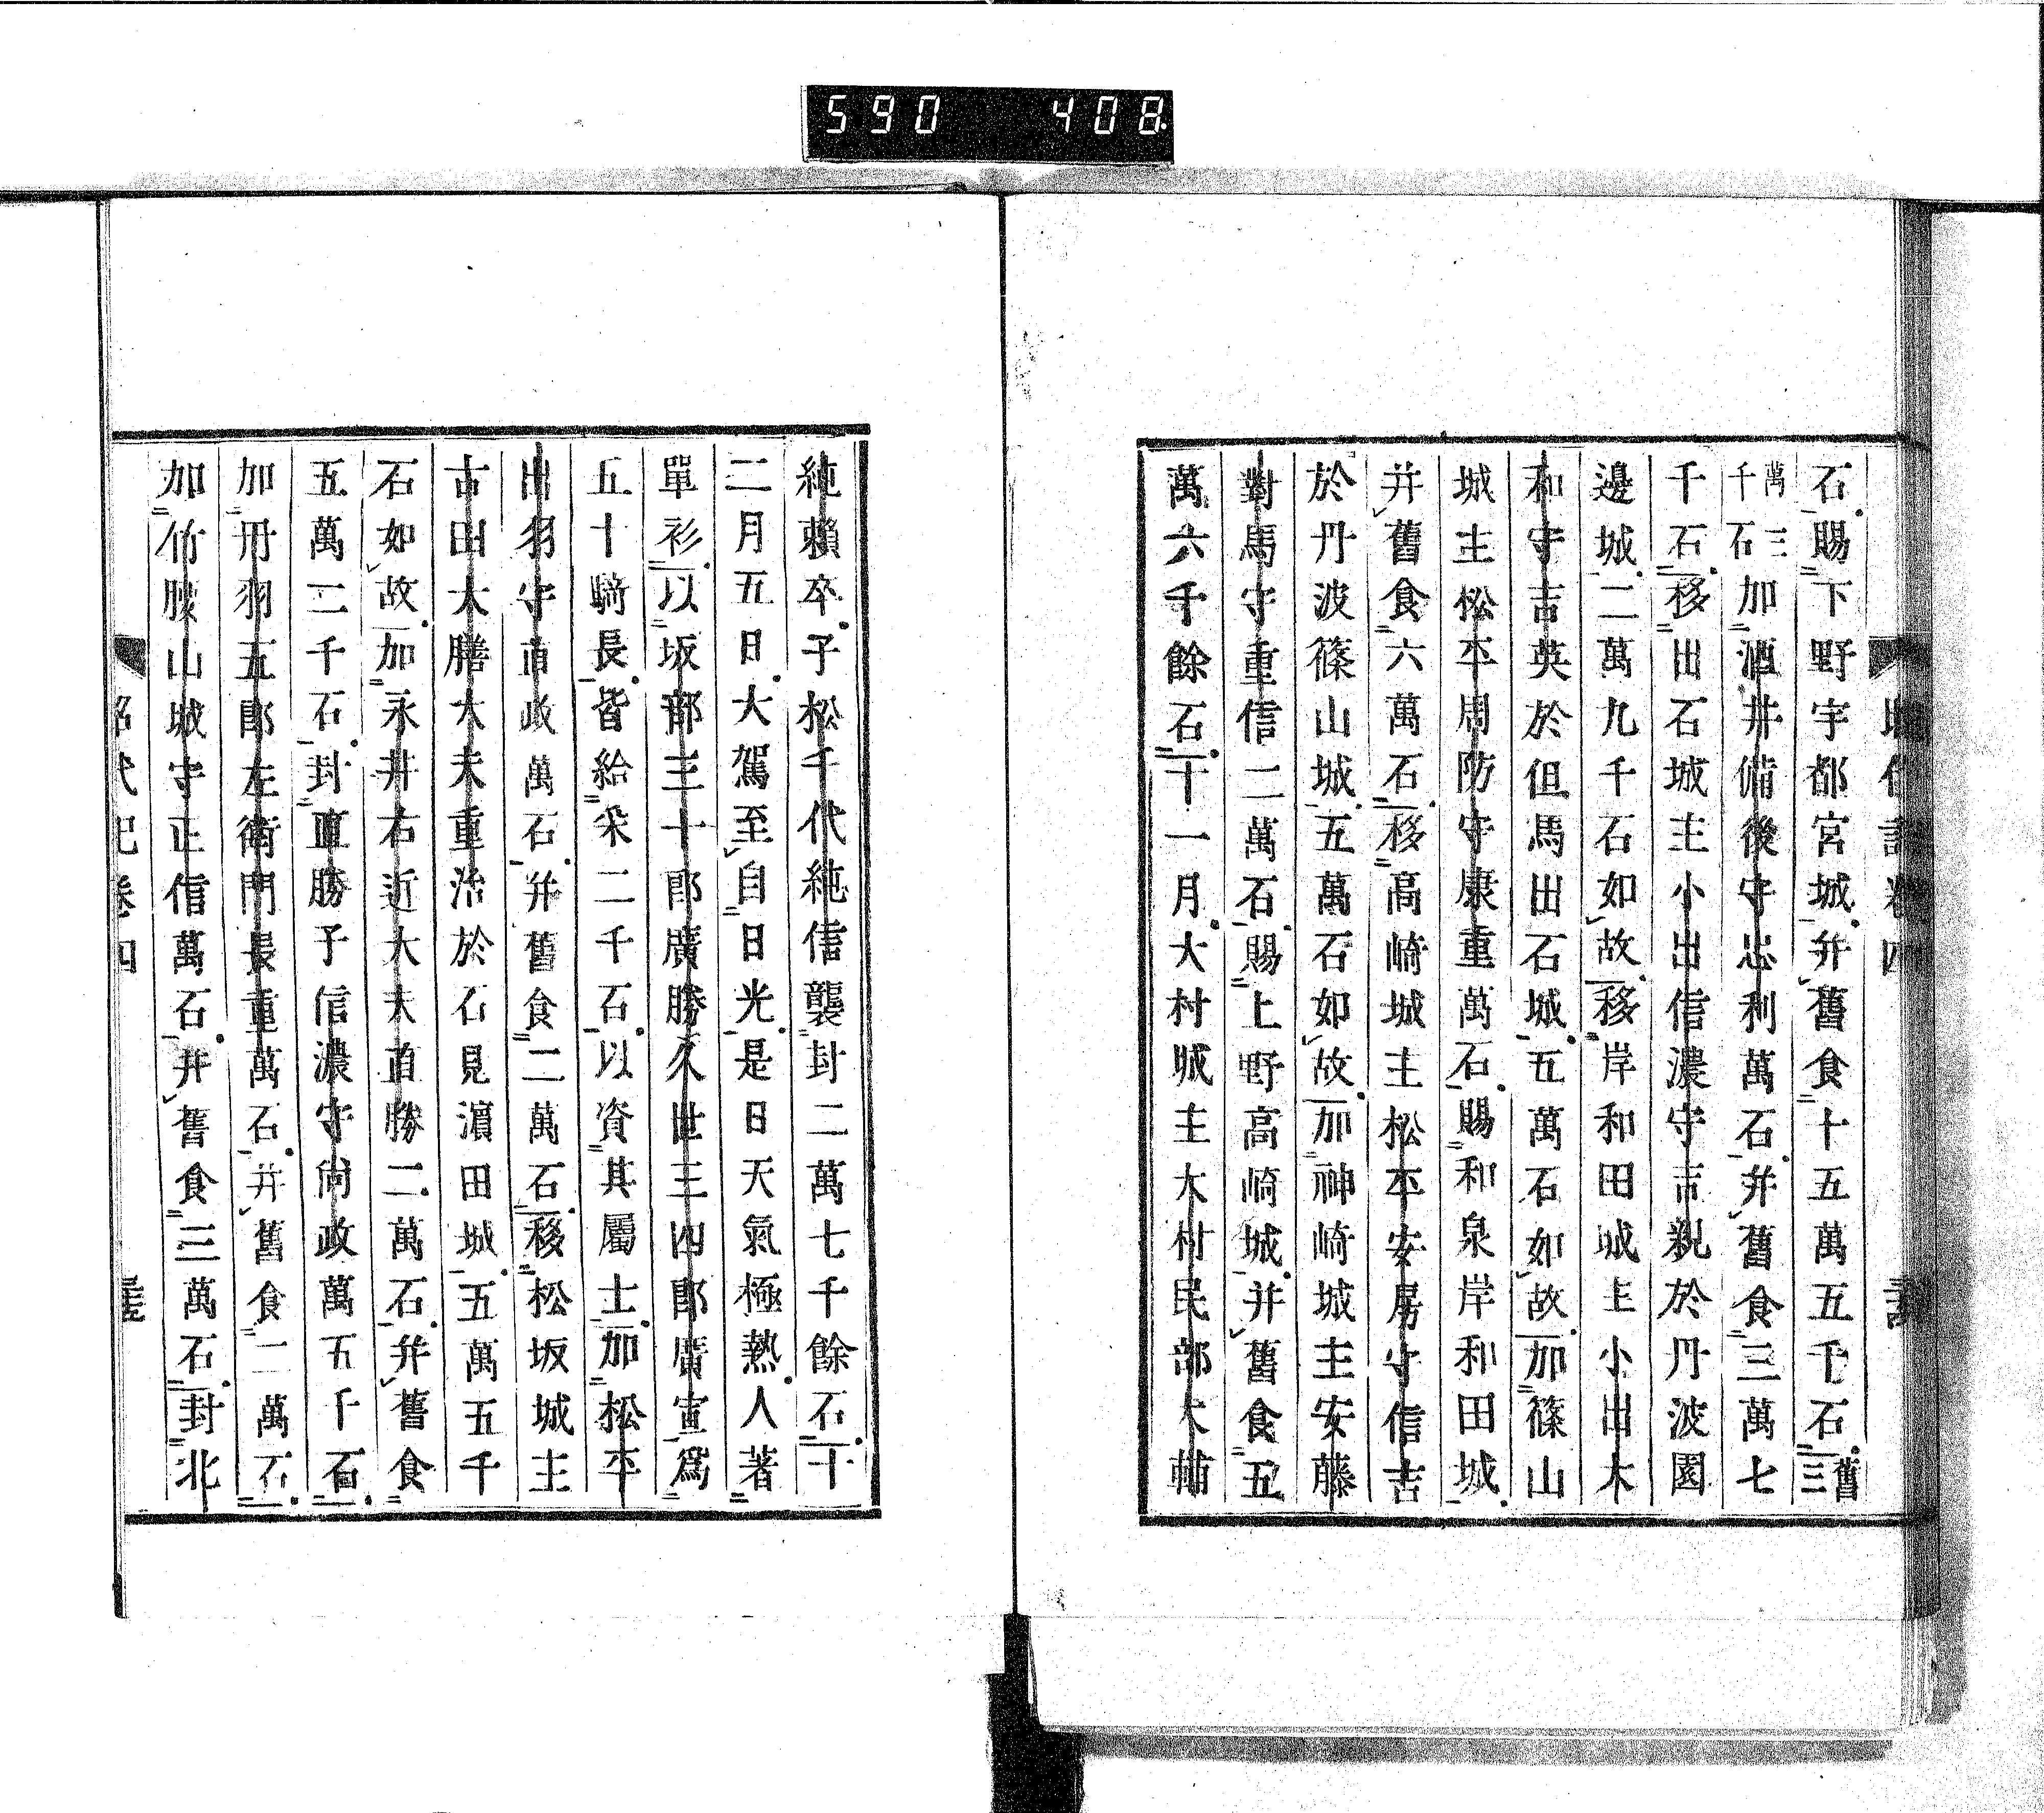 590 408
石賜下野宇都宮城并舊食十五萬五千石舊三
萬三千石加酒井備後守忠利萬石并舊食三萬七
千石移出石城主小出信濃守吉親於丹波園
邊城二萬九千石如故移岸和田城主小出大
和守吉英於但馬出石城五萬石如故加篠山
城主松平周防守康重萬石賜和泉岸和田城
并舊食六萬石移高崎城主松平安房守信吉
於丹波篠山城五萬石如故加神崎城主安藤
對馬守重信二萬石賜上野高崎城并舊食五
萬六千餘石十一月大村城主大村民部大輔
純賴卒子松千代純信襲封二萬七千餘石十
二月五日大駕至自日光是日天氣極熱人著
單衫以坂部三十郎廣勝久世三四郎廣宣爲
五十騎長皆給釆二千石以資其屬士加松平
出羽守直政萬石并舊食二萬石移松坂城主
古田大膳大夫重治於石見濵田城五萬五千
石如故加永井右近大夫直勝二萬石并舊食
五萬二千石封直勝子信濃守尚政萬五千石
加丹羽五郎左衛門長重萬石并舊食二萬石
加竹腰山城守正信萬石并舊食三萬石封北
昭代記卷四